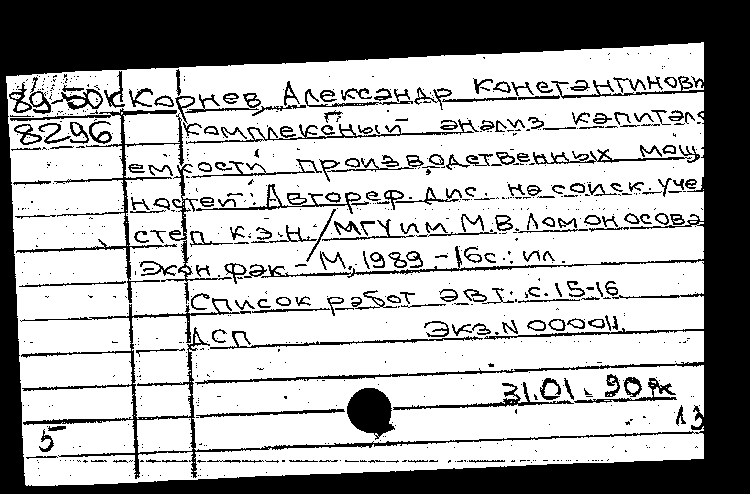 89-50к Корнев, Александр Константинови
8296 Комплексный анализ капитало
емкости производственных мощ-
ностей: Автореф. дис. на соиск. учен
степ. к.э.н. / МГУ им М.В. Ломоносова
Экон. фак. – М, 1989. – 16с.: ил.
Список работ авт.: с. 15-16
ДСП Экз. N 000011.
31.01.90
5 13